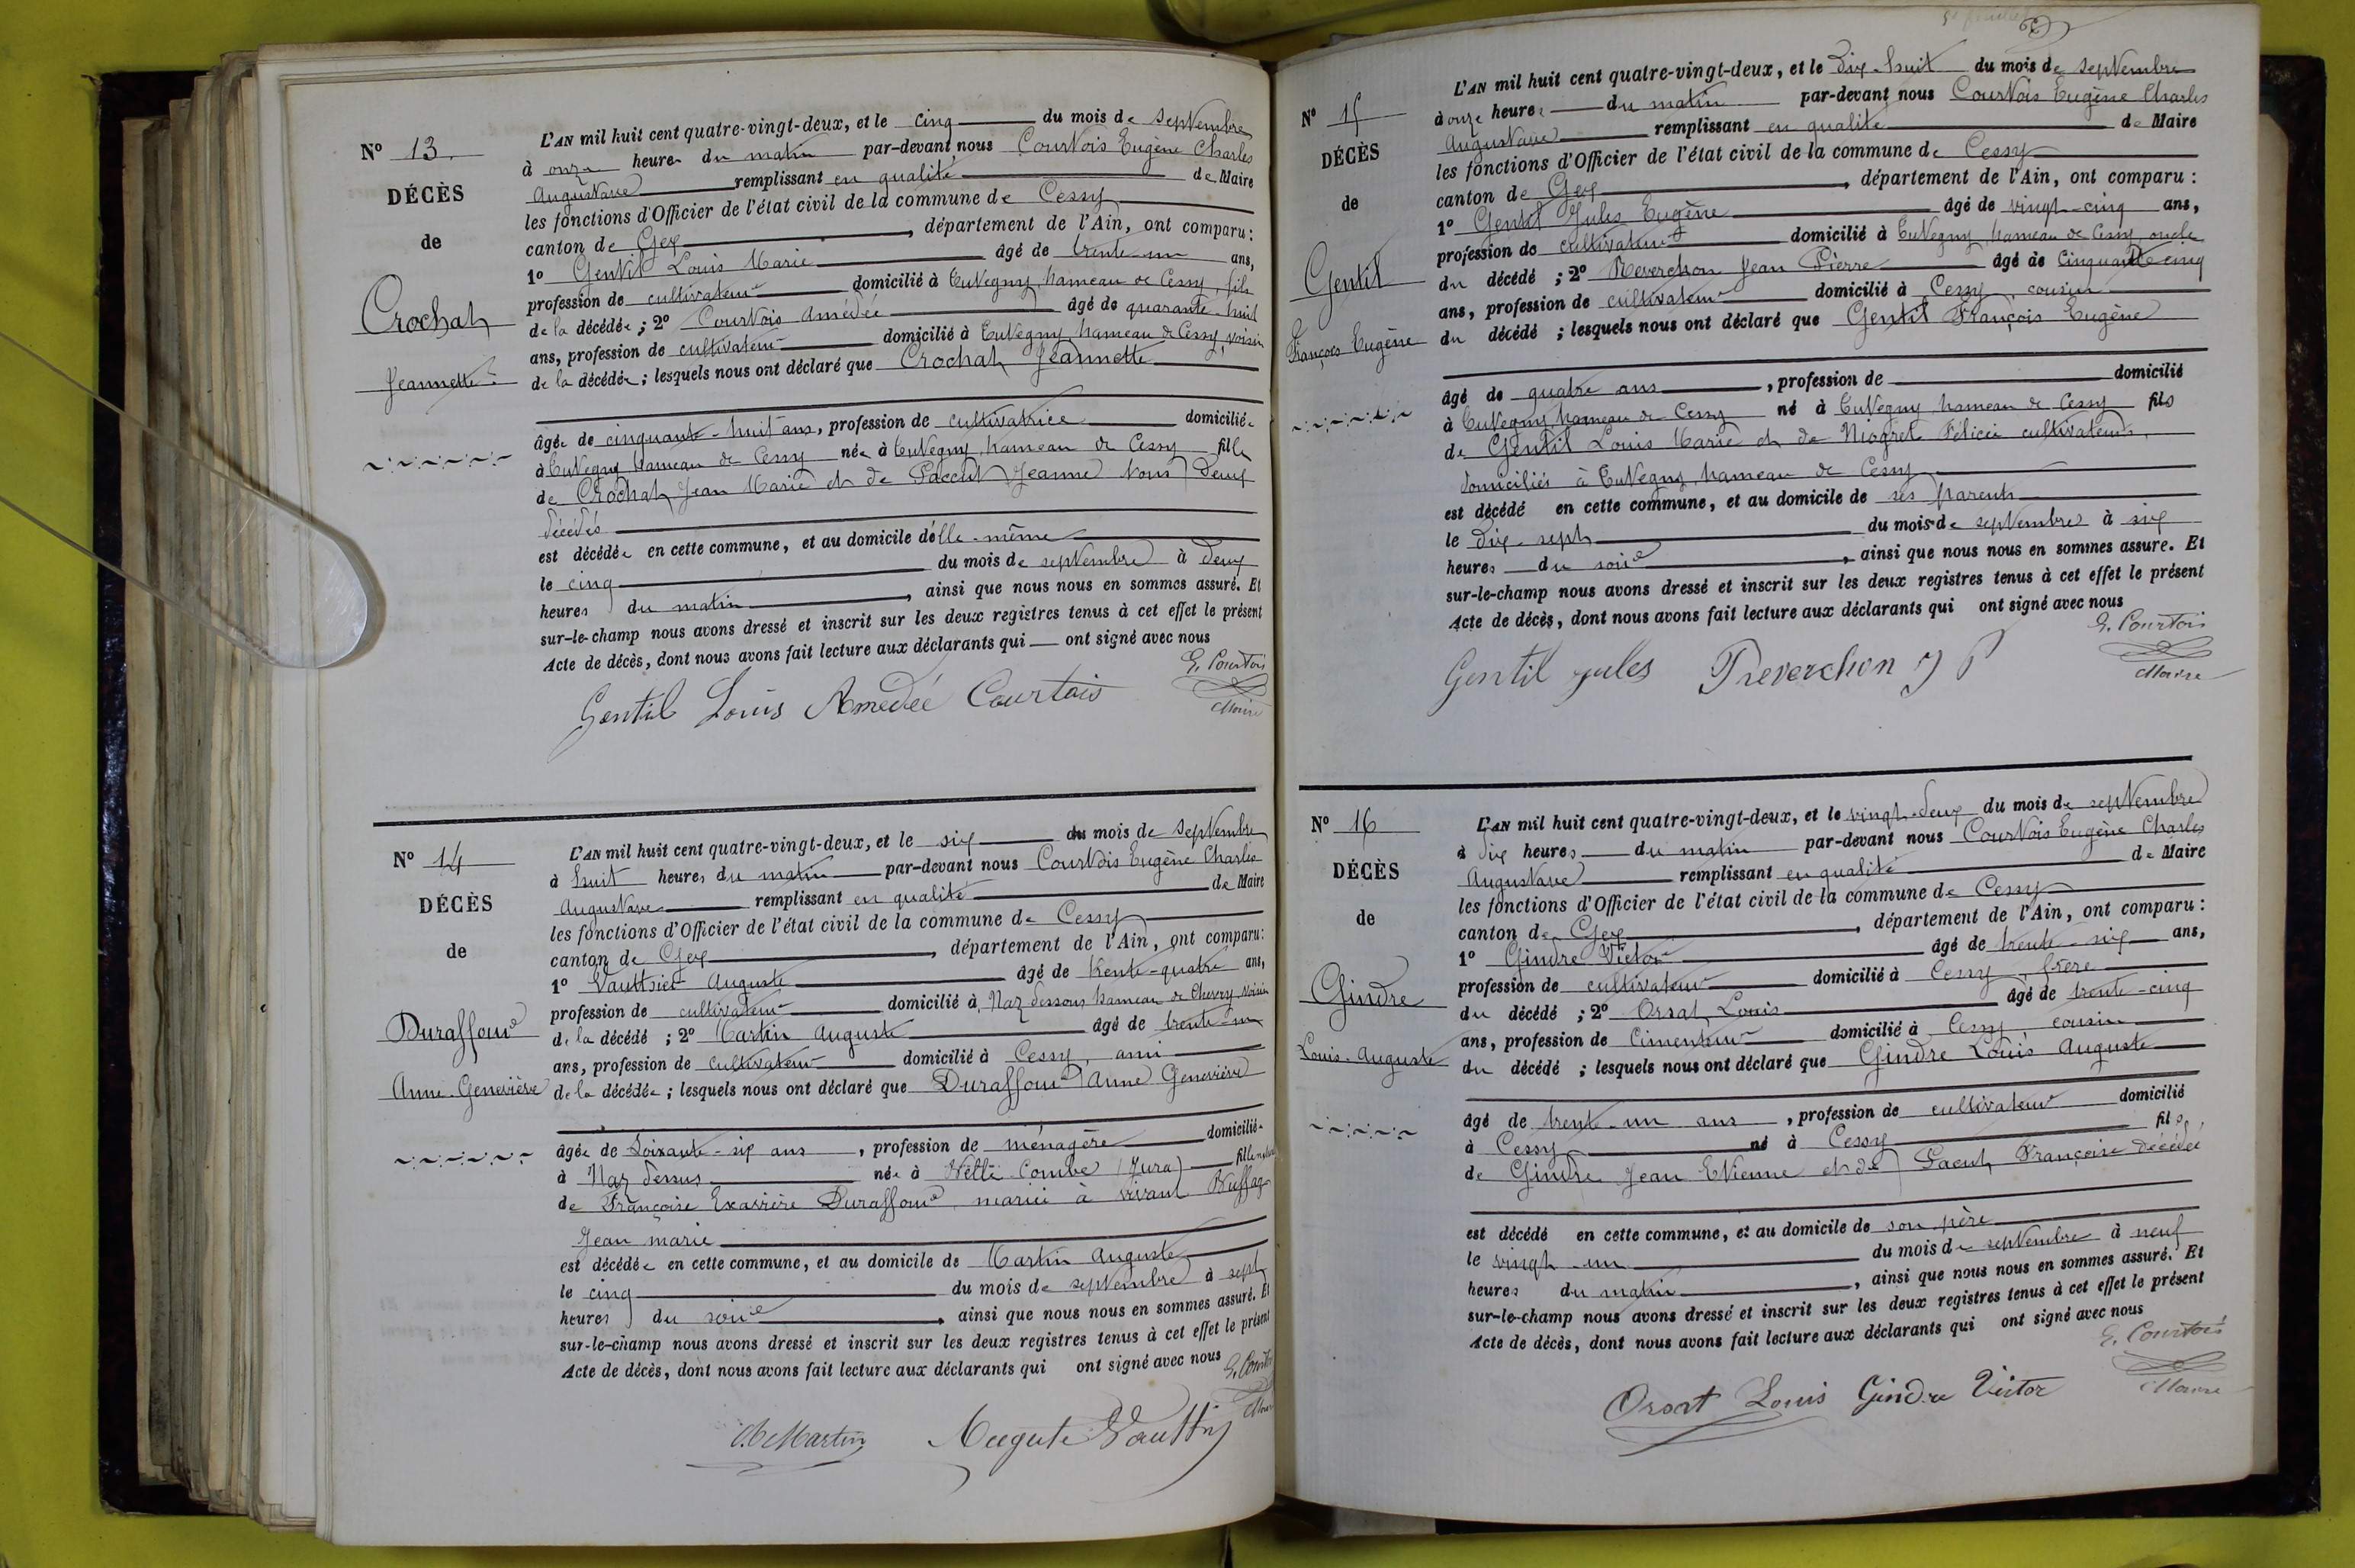 N° 13.
DÉCÈS
de
Crochat
Jeannette
L'AN mil huit cent quatre-vingt-deux, et le cinq du mois de septembre
à onze heures du matin par-devant nous Courtois Eugène Charles
Augustave remplissant en qualité de Maire
les fonctions d'Officier de l'état civil de la commune de Cessy
canton de Gex, département de l'Ain, ont comparu:
1° Gentil Louis Marie âgé de trente-un ans,
profession de cultivateur domicilié à Tutegny, hameau de Cessy, fils
de la décédée; 2° Courtois Amédée âgé de quarante-huit
ans, profession de cultivateur domicilié à Tutegny hameau de Cessy, voisin
de la décédée; lesquels nous ont déclaré que Crochat Jeannette
âgée de cinquante-huit ans, profession de cultivatrice domiciliée
à Tutegny hameau de Cessy née à Tutegny, hameau de Cessy fille
de Crochat Jean Marie et de Paccut Jeanne tous deux
décédés
est décédée en cette commune, et au domicile d'elle-même
le cinq du mois de septembre à deux
heures du matin, ainsi que nous nous en sommes assuré. Et
sur-le-champ nous avons dressé et inscrit sur les deux registres tenus à cet effet le présent
Acte de décès, dont nous avons fait lecture aux déclarants qui ont signé avec nous
E. Courtois
Maire
Gentil Louis Amédée Courtois
N° 14
DÉCÈS
de
Duraffour
Anne-Geneviève
L'AN mil huit cent quatre-vingt-deux, et le six du mois de septembre
à huit heures du matin par-devant nous Courtois Eugène Charles
Augustave remplissant en qualité de Maire
les fonctions d'Officier de l'état civil de la commune de Cessy
canton de Gex, département de l'Ain, ont comparu:
1° Vautthier Auguste âgé de trente-quatre ans,
profession de cultivateur domicilié à Naz dessous hameau de Chevry voisin
de la décédé; 2° Martin Auguste âgé de trente-un
ans, profession de cultivateur domicilié à Cessy, ami
de la décédée; lesquels nous ont déclaré que Duraffour Anne Geneviève
âgée de soixante-six ans, profession de ménagère domiciliée
à Naz dessus née à (Jura) fille
de Françoise Exavière Duraffour, mariée à vivant
Jean marie
est décédée en cette commune, et au domicile de Martin Auguste
le cinq du mois de septembre à sept
heures du soir, ainsi que nous nous en sommes assuré. Et
sur-le-champ nous avons dressé et inscrit sur les deux registres tenus à cet effet le présent
Acte de décès, dont nous avons fait lecture aux déclarants qui ont signé avec nous
Martin Auguste
N° 15
DÉCÈS
de
Gentil
François Eugène
L'AN mil huit cent quatre-vingt-deux, et le dix-huit du mois de septembre
à onze heures du matin par-devant nous Courtois Eugène Charles
Augustave remplissant en qualité de Maire
les fonctions d'Officier de l'état civil de la commune de Cessy
canton de Gex, département de l'Ain, ont comparu:
1° Gentil Jules Eugène âgé de vingt-cinq ans,
profession de cultivateur domicilié à Tutegny, hameau de Cessy oncle
du décédé; 2° Reverchon Jean Pierre âgé de cinquante cinq
ans, profession de cultivateur domicilié à Cessy, cousin
du décédé; lesquels nous ont déclaré que Gentil François Eugène
âgé de quatre ans, profession de domicilié
à Tutegny hameau de Cessy né à Tutegny hameau de Cessy fils
de Gentil Louis Marie et de Niogret Félicie cultivateurs,
domiciliés à Tutegny, hameau de Cessy
est décédé en cette commune, et au domicile de ses parents
le dix-sept du mois de septembre à six
heures du soir, ainsi que nous nous en sommes assuré. Et
sur-le-champ nous avons dressé et inscrit sur les deux registres tenus à cet effet le présent
Acte de décès, dont nous avons fait lecture aux déclarants qui ont signé avec nous
E. Courtois
Maire
Gentil jules Reverchon J P
N° 16
DÉCÈS
de
Gindre
Louis-Auguste
L'AN mil huit cent quatre-vingt-deux, et le vingt-deux du mois de septembre
à dix heures du matin par-devant nous Courtois Eugène Charles
Augustave remplissant en qualité de Maire
les fonctions d'Officier de l'état civil de la commune de Cessy
canton de Gex, département de l'Ain, ont comparu:
1° Gindre Victor âgé de trente-six ans,
profession de cultivateur domicilié à Cessy, frère
du décédé; 2° Orsat Louis âgé de trente-cinq
ans, profession de Cimenteur domicilié à Cessy, cousin
du décédé; lesquels nous ont déclaré que Gindre Louis Auguste
âgé de trente-un ans, profession de cultivateur domicilié
à Cessy né à Cessy fils
de Gindre Jean Etienne et de Pacut Françoise décédée
est décédé en cette commune, et au domicile de son père
le vingt-un du mois de septembre à neuf
heures du matin, ainsi que nous nous en sommes assuré. Et
sur-le-champ nous avons dressé et inscrit sur les deux registres tenus à cet effet le présent
Acte de décès, dont nous avons fait lecture aux déclarants qui ont signé avec nous
E. Courtois
Maire
Orsat Louis Gindre Victor